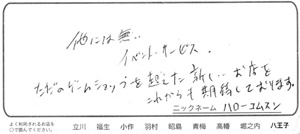 他には無い
イベント・サービス.
ただのゲームショップを超えた新しいお店を
これからも期待しております。
ニックネーム ハローコムスン
よく利用されるお店を
○で囲んでください。
立川 福生 小作 羽村 昭島 青梅 高幡 堀之内 八王子